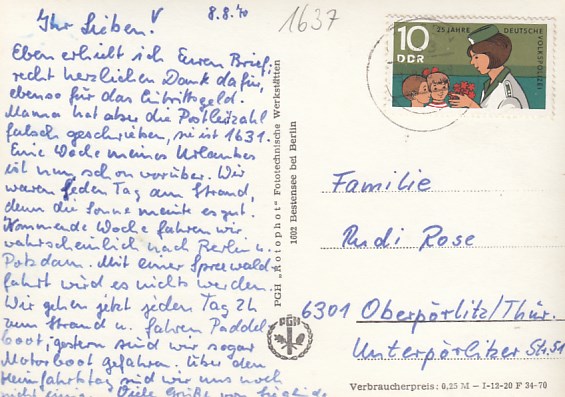 Ihr Lieben! 8.8.70
1637
Eben erhielt ich Euren Brief,
recht herzlichen Dank dafür,
ebenso für das Eintrittsgeld.
Mama hat aber die Postleitzahl
falsch geschrieben, sie ist 1631.
Eine Woche meines Urlaubes
ist nun schon vorüber. Wir
waren jeden Tag am Strand,
denn die Sonne meinte es gut.
Kommende Woche fahren wir
wahrscheinlich nach Berlin u.
Potsdam. Mit einer Spreewald
fahrt wird es nichts werden.
Wir gehen jetzt jeden Tag 2h
zum Strand u. fahren Paddel
boot, gestern sind wir sogar
Motorboot gefahren. Über den
Heimfahrtstag sind wir uns noch
nicht einig. Viele Grüße von
PGH „Rotophot“ Fototechnische Werkstätten
1602 Bestensee bei Berlin
PGH
10
DDR
25 JAHRE DEUTSCHE
VOLKSPOLIZEI
Familie
Rudi Rose
6301 Oberpörlitz/Thür.
Unterpörlitzer Str. 51
Verbraucherpreis: 0,25 M – I-12-20 F 34-70